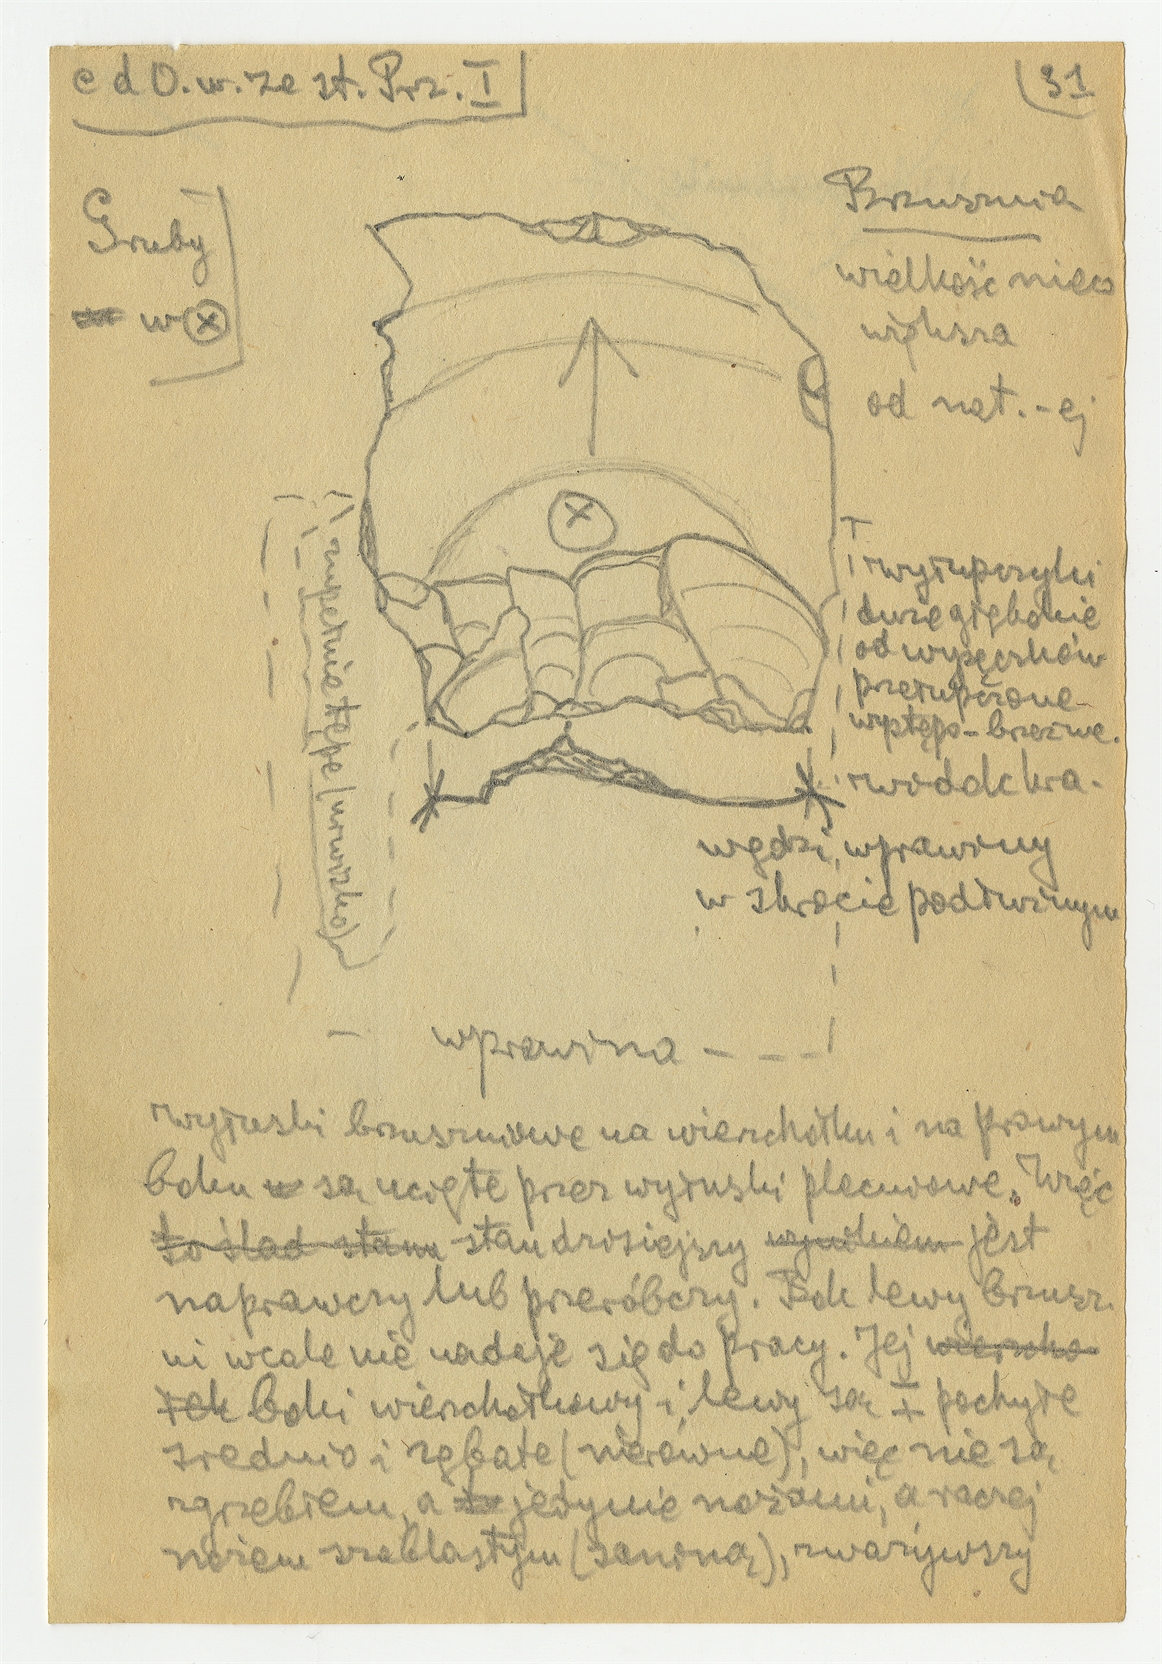 c d O. w. ze st. Prz. I
31
Gruby
w ⊗
Brzusznia
wielkość nieco
większa
od nat.-ej
wyłupczyki
dwie głębokie
od wypęczków
przełupczone
wodok kra-
wędzi, wprawiny
w skrócie podłużnym
zupełnie tępe (urwisko)
wprawina
wyłuski brzuszniowe na wierzchołku i na prawym
boku są ucięte przez wyłuski plecniowe. Więc
to ślad stanu stan dzisiejszy jest
naprawczy lub przeróbczy. Bok lewy brzusz-
ni wcale nie nadaje się do pracy. Jej wierzcho
łek boki wierzchołkowy i lewy są ± pochyłe
średnio i zębate (nierówne), więc nie są
zgrzebłem, a to jedynie nożami, a raczej
nożem szablastym (saniną), zważywszy